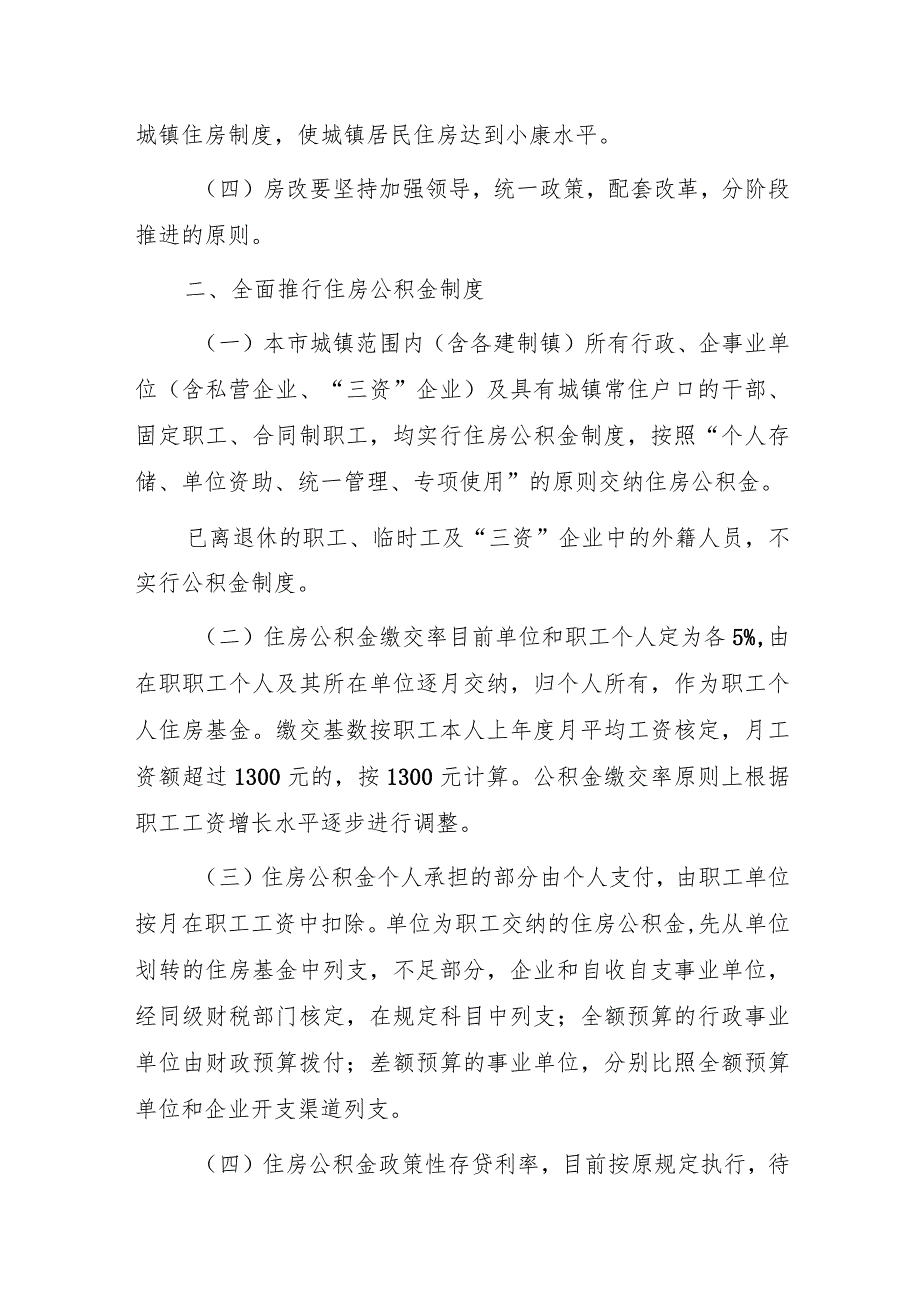 城镇住房制度，使城镇居民住房达到小康水平。
（四）房改要坚持加强领导，统一政策，配套改革，分阶段
推进的原则。
二、全面推行住房公积金制度
（一）本市城镇范围内（含各建制镇）所有行政、企事业单
位（含私营企业、“三资”企业）及具有城镇常住户口的干部、
固定职工、合同制职工，均实行住房公积金制度，按照“个人存
储、单位资助、统一管理、专项使用”的原则交纳住房公积金。
已离退休的职工、临时工及“三资”企业中的外籍人员，不
实行公积金制度。
（二）住房公积金缴交率目前单位和职工个人定为各5%,由
在职职工个人及其所在单位逐月交纳，归个人所有，作为职工个
人住房基金。缴交基数按职工本人上年度月平均工资核定，月工
资额超过1300元的，按1300元计算。公积金缴交率原则上根据
职工工资增长水平逐步进行调整。
（三）住房公积金个人承担的部分由个人支付，由职工单位
按月在职工工资中扣除。单位为职工交纳的住房公积金,先从单位
划转的住房基金中列支，不足部分，企业和自收自支事业单位，
经同级财税部门核定，在规定科目中列支；全额预算的行政事业
单位由财政预算拨付；差额预算的事业单位，分别比照全额预算
单位和企业开支渠道列支。
（四）住房公积金政策性存贷利率，目前按原规定执行，待